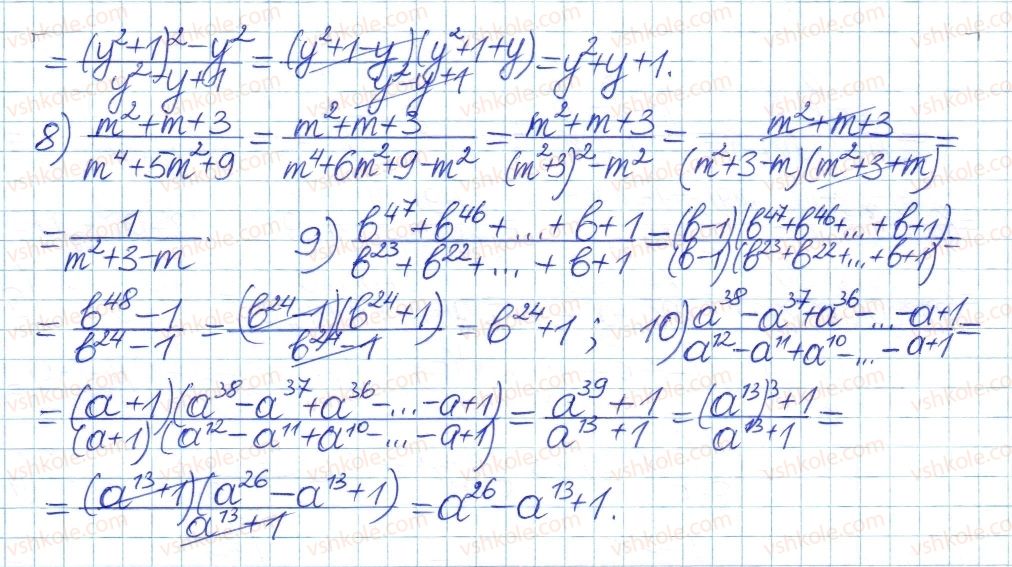 = ((y²+1)²−y²)/(y²−y+1) = ((y²+1−y)(y²+1+y))/(y²−y+1) = y²+y+1.
8) (m²+m+3)/(m⁴+5m²+9) = (m²+m+3)/(m⁴+6m²+9−m²) = (m²+m+3)/((m²+3)²−m²) = (m²+m+3)/((m²+3−m)(m²+3+m)) =
= 1/(m²+3−m). 9) (b⁴⁷+b⁴⁶+...+b+1)/(b²³+b²²+...+b+1) = ((b−1)(b⁴⁷+b⁴⁶+...+b+1))/((b−1)(b²³+b²²+...+b+1)) =
= (b⁴⁸−1)/(b²⁴−1) = ((b²⁴−1)(b²⁴+1))/(b²⁴−1) = b²⁴+1; 10) (a³⁸−a³⁷+a³⁶−...−a+1)/(a¹²−a¹¹+a¹⁰−...−a+1) =
= ((a+1)(a³⁸−a³⁷+a³⁶−...−a+1))/((a+1)(a¹²−a¹¹+a¹⁰−...−a+1)) = (a³⁹+1)/(a¹³+1) = ((a¹³)³+1)/(a¹³+1) =
= ((a¹³+1)(a²⁶−a¹³+1))/(a¹³+1) = a²⁶−a¹³+1.